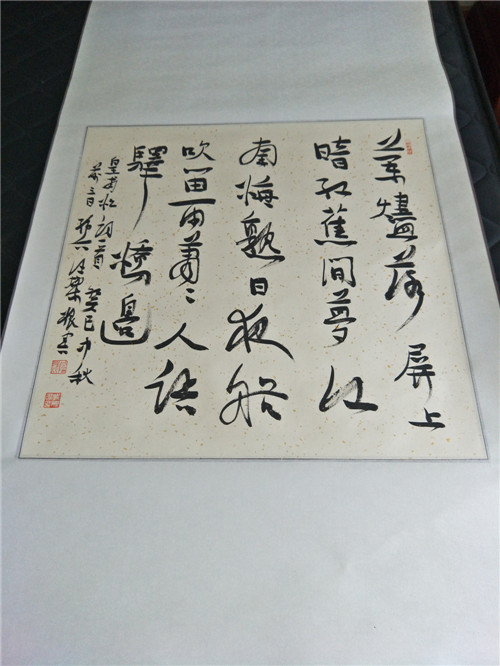 蘭燼落屏上
暗紅蕉間夢江
南梅熟日夜船
吹笛雨蕭々人語
驛橋邊
皇甫松詞一首癸巳中秋
三日